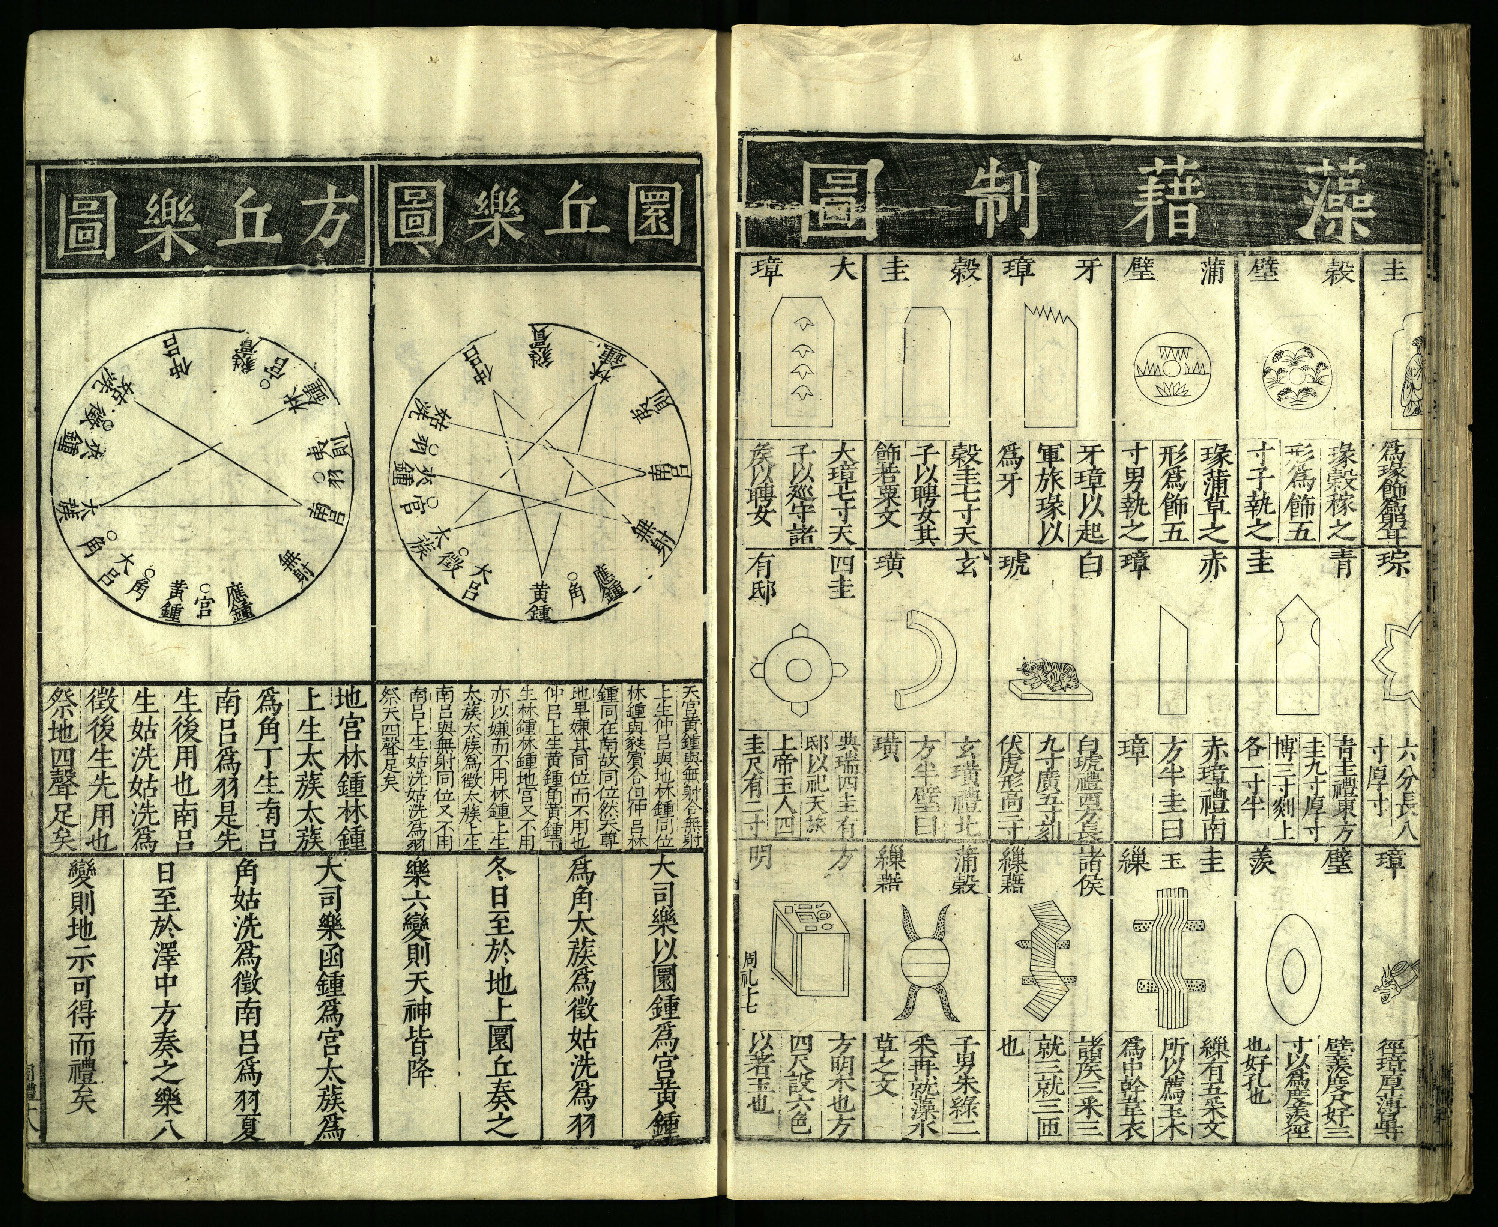 藻藉制圖
圭
爲瑑飾爵
穀璧
瑑穀稼之
形爲飾五
寸子執之
蒲璧
瑑蒲草之
形爲飾五
寸男執之
牙璋
牙璋以起
軍旅瑑以
爲牙
穀圭
穀圭七寸天
子以聘女其
飾若粟文
大璋
大璋七寸天
子以廵守諸
矦以聘女
琮
六分長八
寸厚寸
青圭
青圭禮東方
圭九寸厚寸
博三寸剡上
各一寸半
赤璋
赤璋禮南
方半圭曰
璋
白琥
白琥禮西方長
九寸廣五寸刻
伏虎形高三寸
玄璜
玄璜禮北
方半壁曰
璜
四圭有邸
典瑞四圭有
邸以祀天旅
上帝玉人四
圭尺有二寸
璋
璧羡
璧羡度尺好三
寸以爲度羡徑
也好孔也
圭玉繅
繅有五采文
所以薦玉木
爲中幹韋衣
諸侯繅藉
諸矦三采三
就三就三匝
也
蒲穀繅藉
子男朱綠二
采再就藻水
草之文
方明
方明木也方
四尺設六色
以著玉也
周礼十七
圜丘樂圖
蕤賓
林鍾
夷則
南呂
無射
應鍾
角
黃鍾
大呂
徵
太蔟
宮
夾鍾
羽
姑洗
仲呂
天宮黃鍾與無射合無射
上生仲呂與地林鍾同位
林鍾與蕤賓合但仲呂林
鍾同在南故同位然天尊
地卑嫌其同位而不用也
仲呂上生黃鍾黃鍾下
生林鍾林鍾地宮又不用
亦以嫌而不用林鍾上生
太蔟太蔟爲徵太蔟下生
南呂與無射同位又不用
南呂上生姑洗姑洗爲羽
祭天四聲足矣
大司樂以圜鍾爲宮黃鍾
爲角太蔟爲徵姑洗爲羽
冬日至於地上圜丘奏之
樂六變則天神皆降
方丘樂圖
蕤賓
宮
林鍾
夷則
羽
南呂
無射
應鍾
宮
黃鍾
角
大呂
角
太蔟
夾鍾
徵
姑洗
仲呂
地宮林鍾林鍾
上生太蔟太蔟
爲角下生南呂
南呂爲羽是先
生後用也南呂
生姑洗姑洗爲
徵後生先用也
祭地四聲足矣
大司樂函鍾爲宮太蔟爲
角姑洗爲徵南呂爲羽夏
日至於澤中方奏之樂八
變則地示可得而禮矣